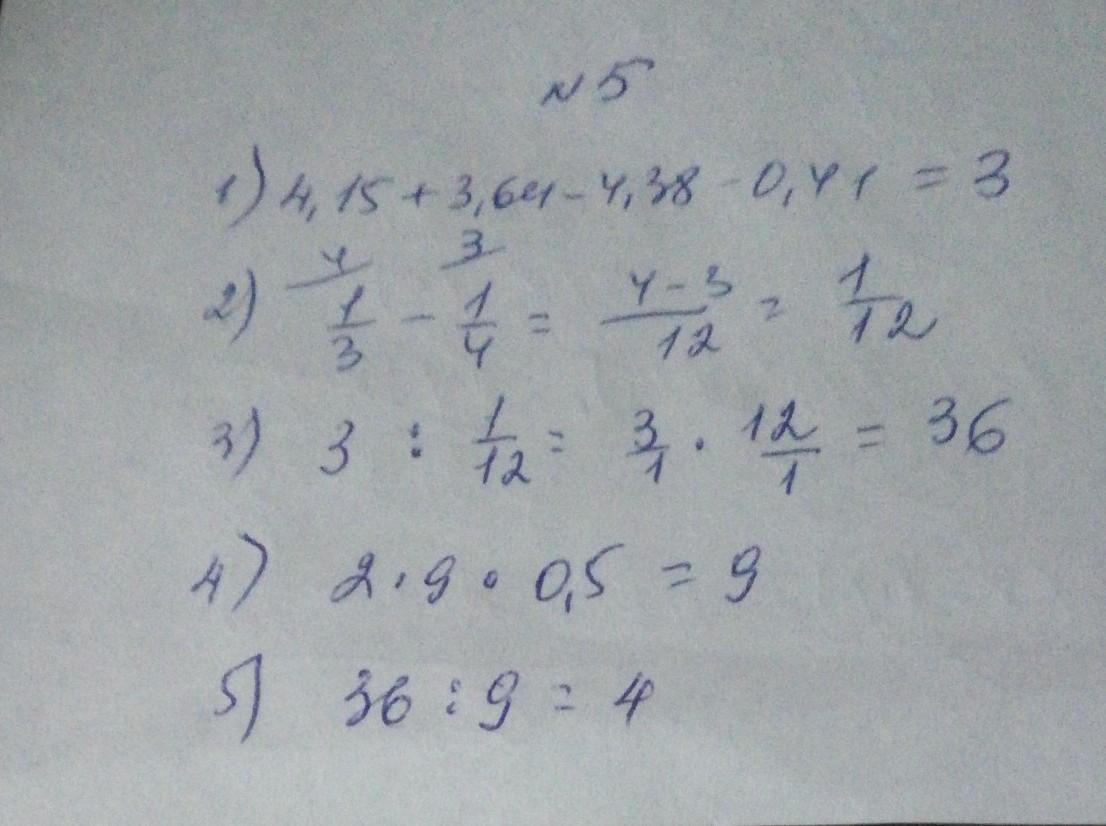 N 5
1) 4,15 + 3,64 - 4,38 - 0,41 = 3
4 3
2) 1/3 - 1/4 = 4-3/12 = 1/12
3) 3 : 1/12 = 3/1 · 12/1 = 36
4) 2 · 9 · 0,5 = 9
5) 36 : 9 = 4